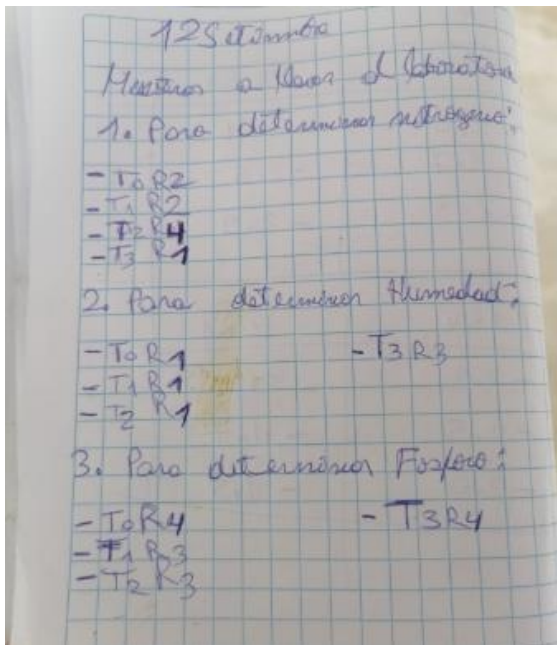 12 Setiembre
Muestras a llevar al laboratorio
1. Para determinar nitrogeno:
- T0 R2
- T1 R2
- T2 R4
- T3 R1
2. Para determinar Humedad:
- T0 R1 - T3 R3
- T1 R1
- T2 R1
3. Para determinar Fosforo:
- T0 R4 - T3 R4
- T1 R3
- T2 R3